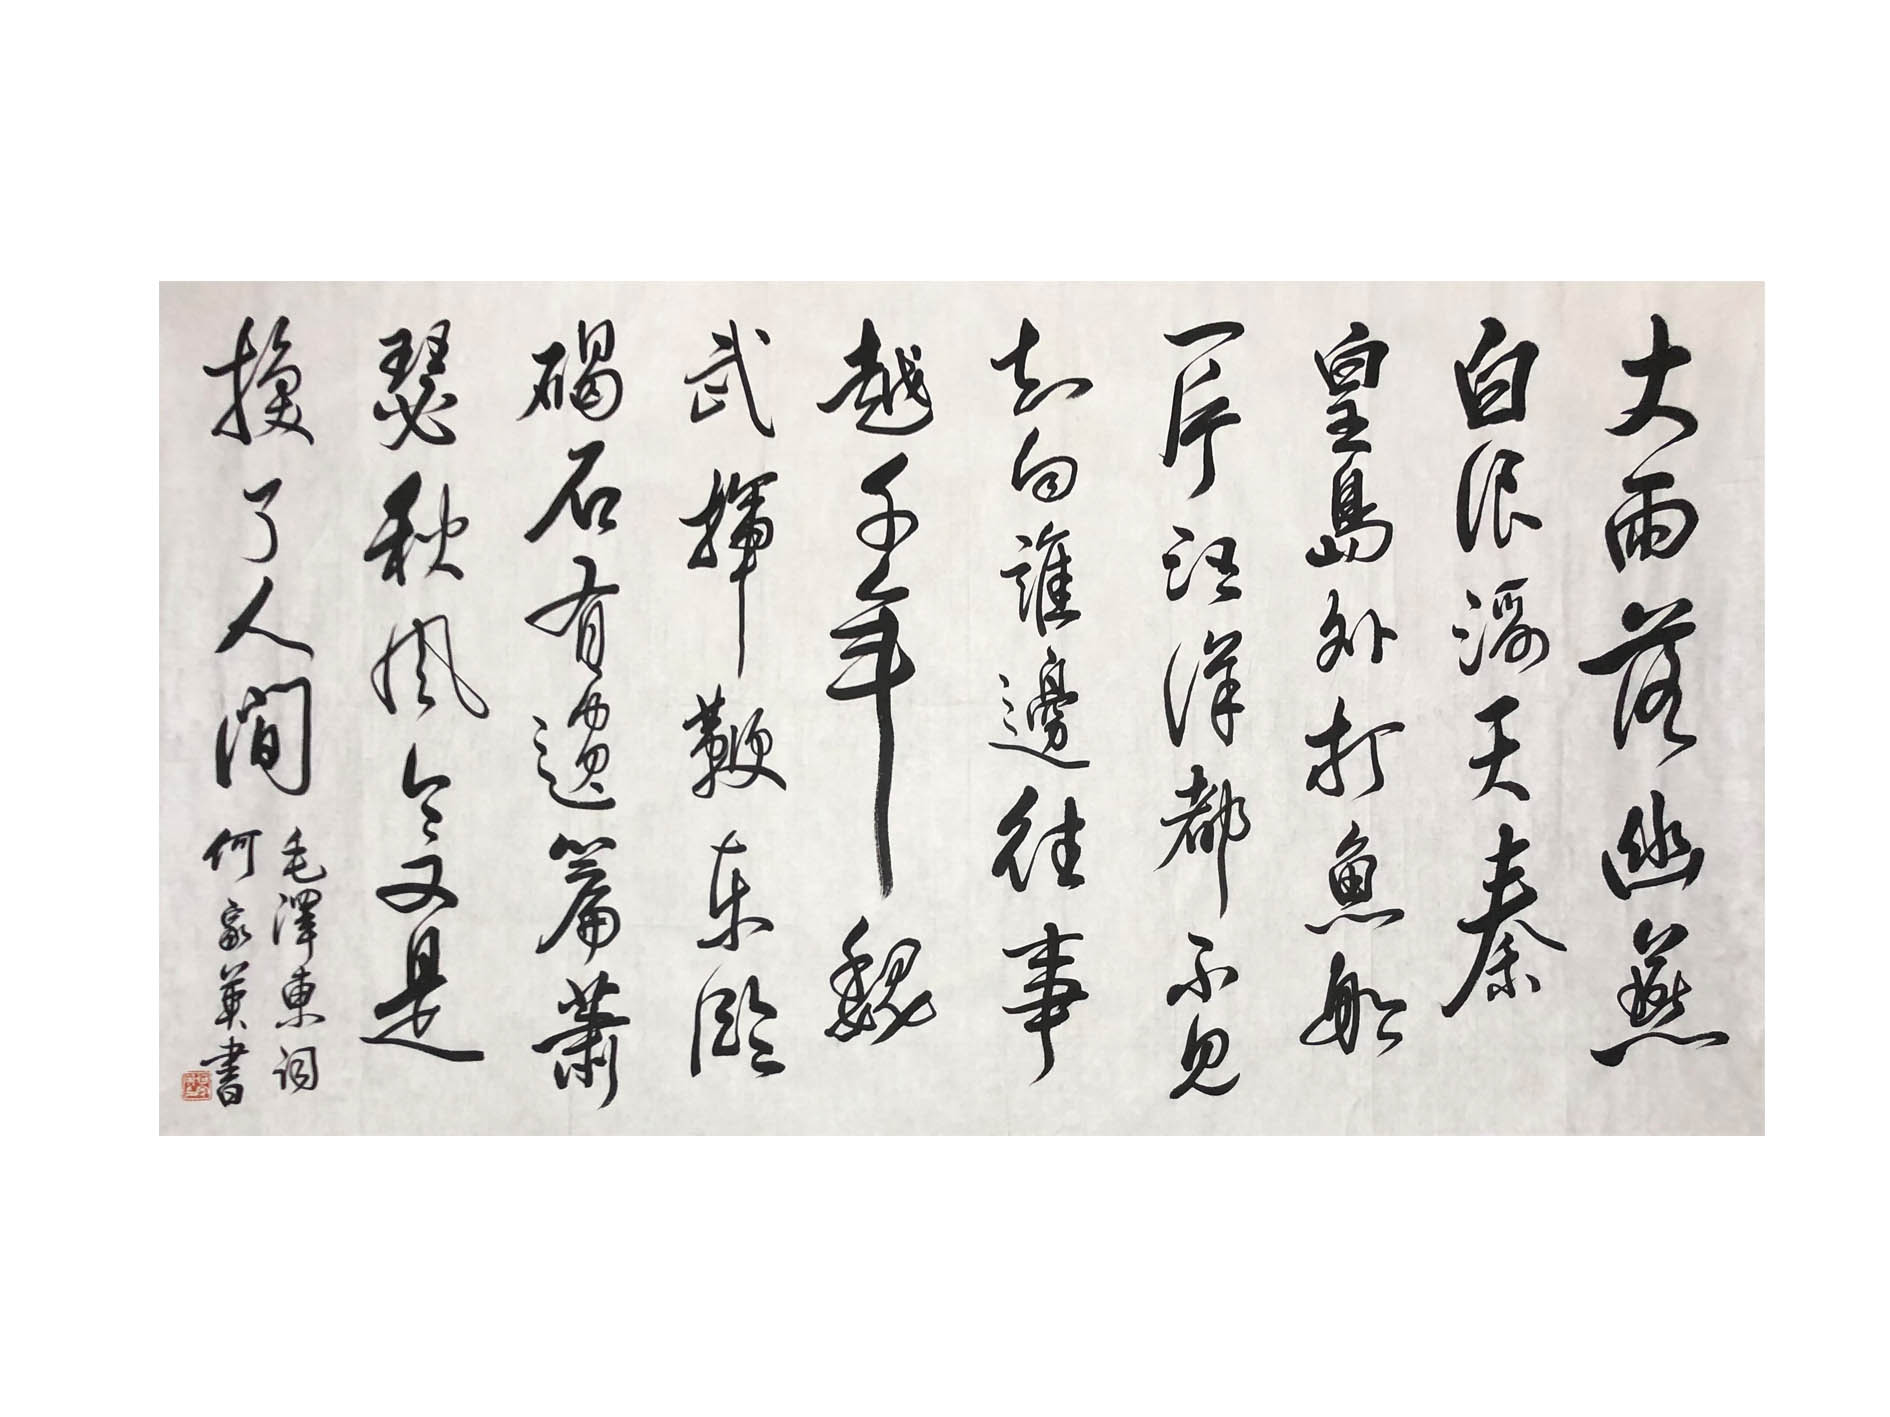 大雨落幽燕
白浪滔天秦
皇島外打魚船
一片汪洋都不見
知向誰邊往事
越千年魏
武揮鞭東臨
碣石有遺篇蕭
瑟秋風今又是
換了人間
毛澤東詞
何家英書